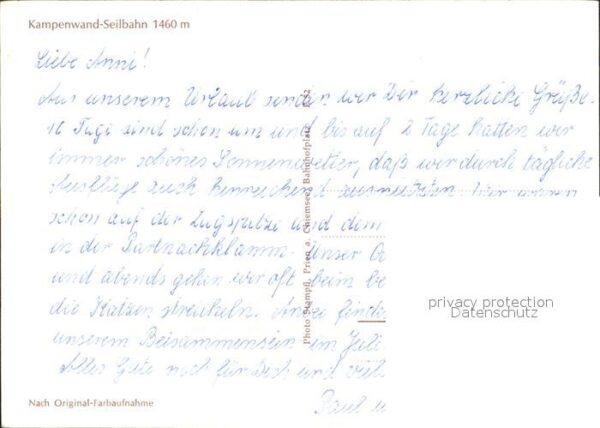 Kampenwand-Seilbahn 1460 m
Liebe Anni!
Aus unserem Urlaub senden wir Dir herzliche Grüße.
16 Tage sind schon um und bis auf 2 Tage hatten wir
immer schönes Sonnenwetter, daß wir durch tägliche
Ausflüge auch
schon auf der Zugspitze und dem
in der Partnachklamm. Unser
und abends gehen wir oft beim
die Katzen streicheln. finde
unserem Beisammensein im Juli
Alles Gute noch für Dich und viele
Paul u
Photo Stampfl, Prien a. Chiemsee, Bahnhofplatz
privacy protection
Datenschutz
Nach Original-Farbaufnahme